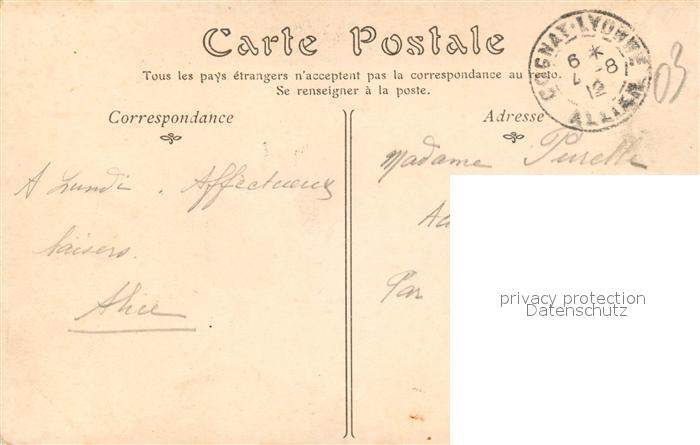 Carte Postale
Tous les pays étrangers n'acceptent pas la correspondance au recto.
Se renseigner à la poste.
COGNAT-LYONNE
6 *
-8
12
ALLIER
03
Correspondance
Adresse
Madame
A Lundi. Affectueux
baisers.
Alice
Par
privacy protection
Datenschutz